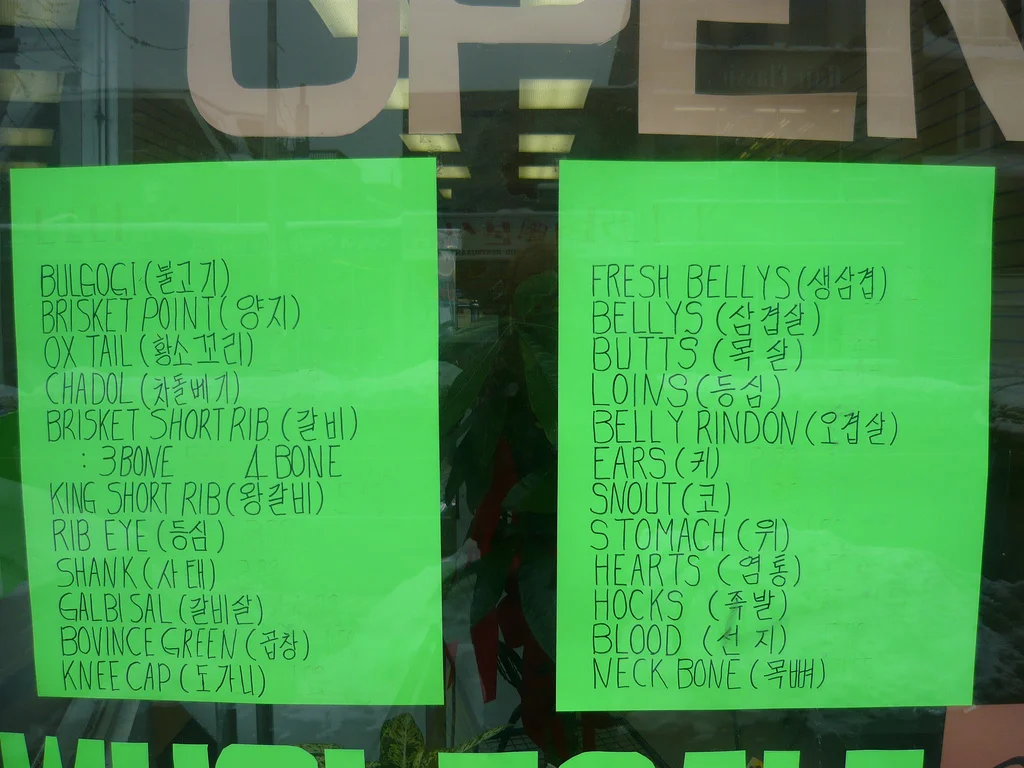 OPEN
BULGOGI (불고기)
BRISKET POINT (양지)
OX TAIL (황소꼬리)
CHADOL (차돌베기)
BRISKET SHORT RIB (갈비)
: 3 BONE 4 BONE
KING SHORT RIB (왕갈비)
RIB EYE (등심)
SHANK (사태)
GALBI SAL (갈비살)
BOVINCE GREEN (곱창)
KNEE CAP (도가니)
FRESH BELLYS (생삼겹)
BELLYS (삼겹살)
BUTTS (목살)
LOINS (등심)
BELLY RINDON (오겹살)
EARS (귀)
SNOUT (코)
STOMACH (위)
HEARTS (염통)
HOCKS (족발)
BLOOD (선지)
NECK BONE (목뼈)